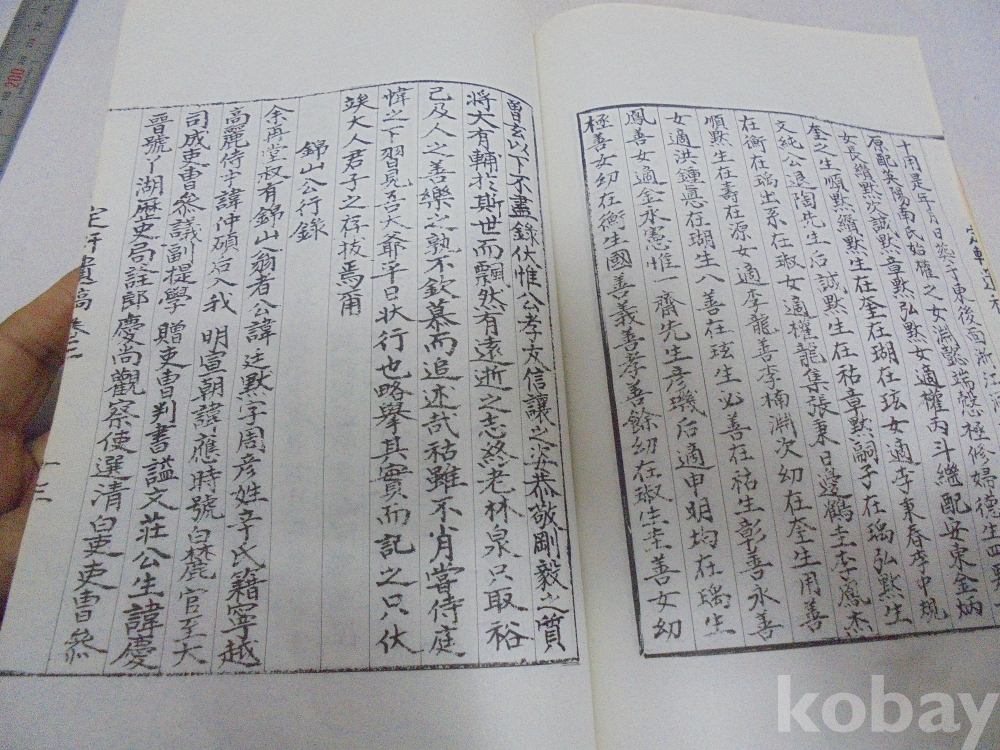 十用是年
原配英陽南氏始權之女淵懿端慤極修婦德生四男
女長纘黙次誠黙章黙弘黙女適權丙斗繼配安東金炳
奎之生順黙纘黙生在奎在瑚在玹女適李東春李中規
文純公退陶先生后誠黙生在祜章黙嗣子在瑀弘黙生
在衡在瑀出系在琡女適權龍集張東日愛鶴圭李鳳杰
順黙生在壽在源女適李龍善李楠淵次幼在奎生用善
女適洪鍾直在瑚生八善在玹生必善在祜生彰善永善
鳳善女適金水憲惟一齋先生彦璣后適申明均在瑀生
極善女幼在衡生國善義善孝善餘幼在琡生圭善女幼
曾玄以下不盡錄伏惟公孝友信讓之姿恭敬剛毅之質
將大有輔於斯世而飄然有遠逝之志終老林泉只取裕
己及人之善樂之孰不欽慕而追述哉祜雖不肖嘗侍庭
幃之下習見吾大爺平日狀行也略擧其實而記之只伏
竢大人君子之存拔焉爾
錦山公行錄
余再堂叔有錦山翁者公諱廷黙字周彦姓辛氏籍寧越
高麗侍中諱仲碩后入我 明宣朝諱應時號白麓官至大
司成吏曹參議副提學 贈吏曹判書謚文莊公生諱慶
晉號丫湖歷史局註郎慶尚觀察使選清白吏吏曹參
定軒遺稿 卷三
十三
kobay
200